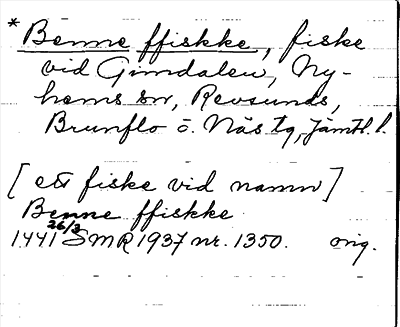 * Benne ffiskke, fiske
vid Gimdalen, Ny-
hems sn, Revsunds,
Brunflo o. Näs tg, Jämtl. l.
[ett fiske vid namn]
Benne ffiskke
1441 26/3 SMR 1937 nr. 1350. orig.